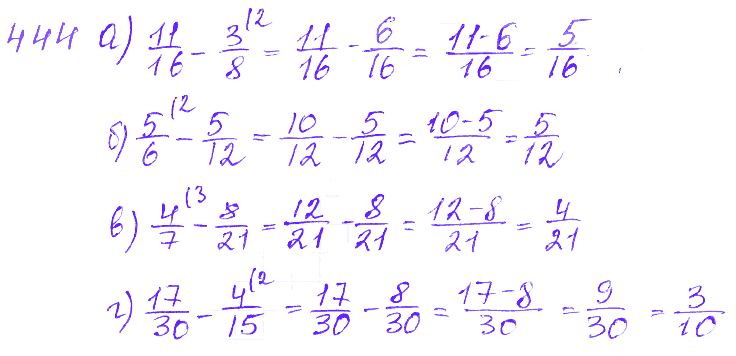 444 а) 11/16 - 3/8 (2 = 11/16 - 6/16 = 11-6/16 = 5/16
б) 5/6 (2 - 5/12 = 10/12 - 5/12 = 10-5/12 = 5/12
в) 4/7 (3 - 8/21 = 12/21 - 8/21 = 12-8/21 = 4/21
г) 17/30 - 4/15 (2 = 17/30 - 8/30 = 17-8/30 = 9/30 = 3/10